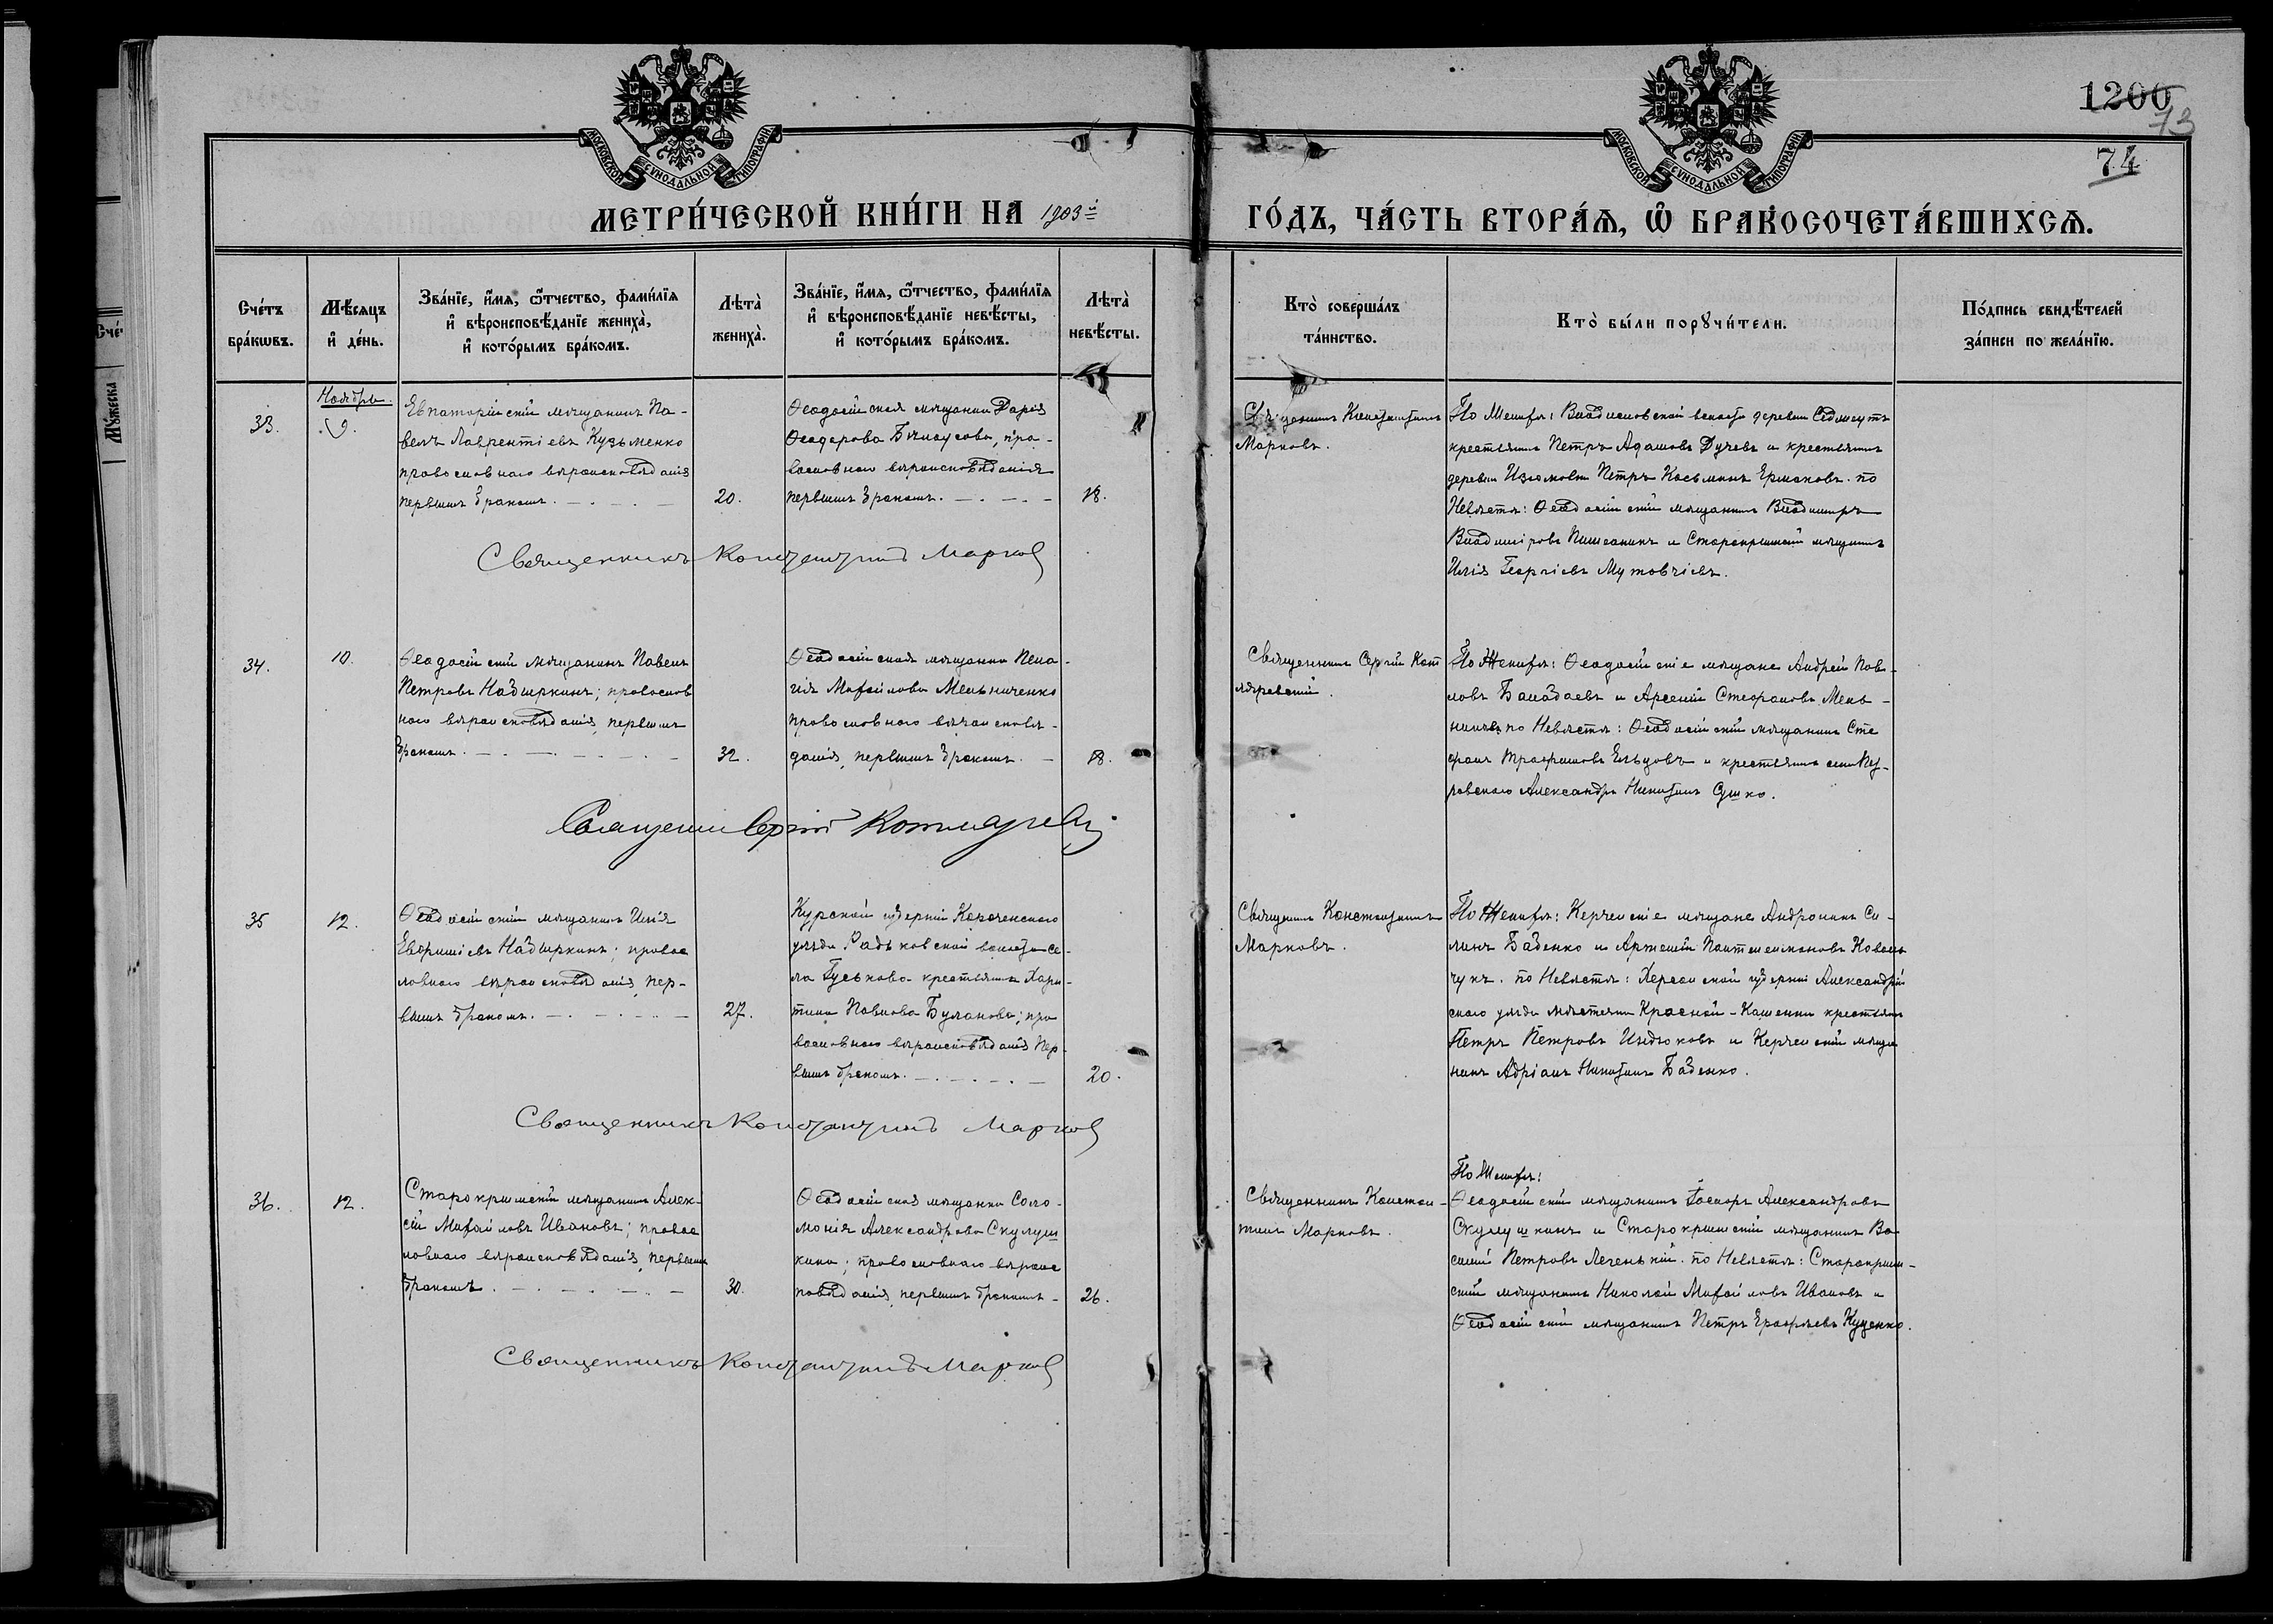 1200
73
74
МОСКОВСКОЙ СѴНОДАЛЬНОЙ ТИПОГРАФІИ
МОСКОВСКОЙ СѴНОДАЛЬНОЙ ТИПОГРАФІИ
МЕТРИ́ЧЕСКОЙ КНИ́ГИ НА 1903й
ГО́ДЪ, ЧА́СТЬ ВТОРА́Ѧ, Ѽ БРАКОСОЧЕТА́ВШИХСѦ.
Сче́тъ бра́кѡвъ.
Мѣ́сѧцъ и҆ де́нь.
Зва́нїе, и҆́мѧ, ѻ҆́тчество, фами́лїѧ
и҆ вѣроисповѣ́данїе жениха̀,
и҆ кото́рымъ бра́комъ.
Лѣта̀ жениха̀.
Зва́нїе, и҆́мѧ, ѻ҆́тчество, фами́лїѧ
и҆ вѣроисповѣ́данїе невѣ́сты,
и҆ кото́рымъ бра́комъ.
Лѣта̀ невѣ́сты.
Кто̀ соверша́лъ та́инство.
Кто̀ бы́ли порꙋчи́тели.
По́дпись свидѣ́телей за́писи по жела́нїю.
Ноябрь.
33.
9.
Евпаторійскій мѣщанинъ Па-
велъ Лаврентіевъ Кузьменко
православнаго вѣроисповѣданія
первымъ бракомъ.
20.
Ѳеодосійская мѣщанка Дарія
Ѳеодорова Бѣлоусова, пра-
вославнаго вѣроисповѣданія
первымъ бракомъ.
18.
Священникъ Константинъ
Марковъ.
По Женихѣ: Владиславской волости деревни
крестьянинъ Петръ Адамовъ Дучевъ и крестьянинъ
деревни Изюмовки Петръ Косьминъ Ермаковъ. по
Невѣстѣ: Ѳеодосійскій мѣщанинъ Владимиръ
Владиміровъ и Старокрымскій мѣщанинъ
Илія Георгіевъ Мутовчіевъ.
Священникъ Константинъ Марковъ
34.
10.
Ѳеодосійскій мѣщанинъ Павелъ
Петровъ Надыркинъ; православ
наго вѣроисповѣданія, первымъ
бракомъ.
32.
Ѳеодосійская мѣщанка Пела-
гія Михайлова Мельниченко
православнаго вѣроисповѣ-
данія, первымъ бракомъ.
18.
Священникъ Сергій Кот
ляревскій.
По Женихѣ: Ѳеодосійскіе мѣщане Андрей Пав-
ловъ Балабаевъ и Арсеній Стефановъ Мель-
по Невѣстѣ: Ѳеодосійскій мѣщанинъ Сте
фанъ Трофимовъ Ельцовъ и крестьянинъ села Пет-
ровскаго Александръ Никитинъ Сушко.
Священникъ Сергій Котляревскій
35
12.
Ѳеодосійскій мѣщанинъ Илія
Евфиміевъ Надыркинъ; правос
лавнаго вѣроисповѣданія, пер-
вымъ бракомъ.
27.
Курской губерніи Корочанскаго
уѣзда Радьковской волости се-
ла Гуськова крестьянка Хари-
тина Павлова Буланова; пра
вославнаго вѣроисповѣданія пер-
вымъ бракомъ.
20.
Священникъ Константинъ
Марковъ.
По Женихѣ: Керченскіе мѣщане Андроникъ Си-
линъ Баденко и Артемій Пантелеимоновъ Коваль
чукъ. по Невѣстѣ: Херсонской губерніи Александрій
скаго уѣзда мѣстечка Красной-Каменки крестьянинъ
Петръ Петровъ Индюковъ и Керченскій мѣща
нинъ Адріанъ Никитинъ Баденко.
Священникъ Константинъ Марковъ
36.
12.
Старокрымскій мѣщанинъ Алек-
сій Михайловъ Ивановъ; правос
лавнаго вѣроисповѣданія, первымъ
бракомъ.
30.
Ѳеодосійская мѣщанка Соло-
монія Александрова Скулуш
кина; православнаго вѣроис
повѣданія, первымъ бракомъ
26.
Священникъ Констан-
тинъ Марковъ.
По Женихѣ:
Ѳеодосійскій мѣщанинъ Александровъ
Скулушкинъ и Старокрымскій мѣщанинъ Ва
силій Петровъ Легенькій. по Невѣстѣ: Старокрым-
скій мѣщанинъ Николай Михайловъ Ивановъ и
Ѳеодосійскій мѣщанинъ Петръ Ерофѣевъ Куценко.
Священникъ Константинъ Марковъ